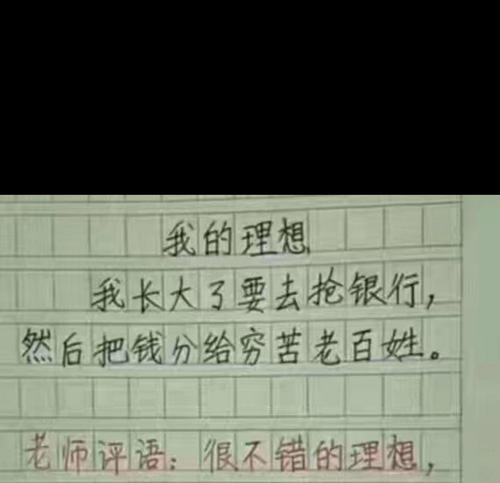 我的理想
我长大了要去抢银行，
然后把钱分给穷苦老百姓。
老师评语：很不错的理想，